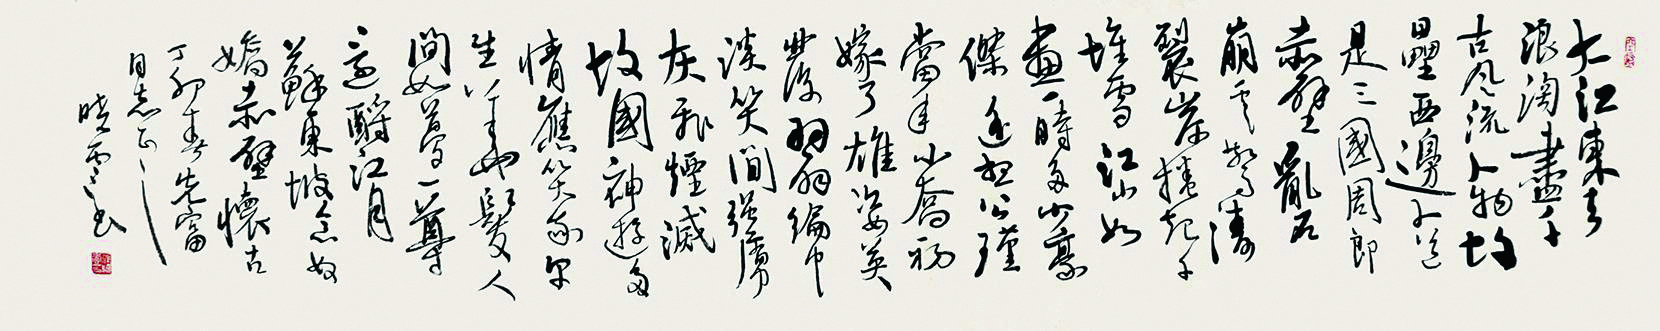 大江東去
浪淘盡千
古風流人物故
壘西邊人道
是三國周郎
赤壁亂石
崩雲驚濤
裂岸捲起千
堆雪江山如
畫一時多少豪
傑遙想公瑾
當年小喬初
嫁了雄姿英
發羽扇綸巾
談笑間強虜
灰飛煙滅
故國神遊多
情應笑我
生華髮人
間如夢一尊
還酹江月
蘇東坡念奴
嬌赤壁懷古
丁卯春先富
同志正之
曉雲書